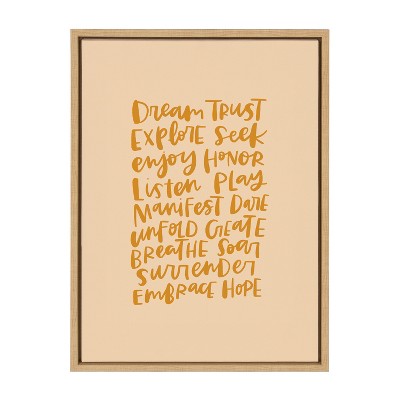 Dream TRUST
EXPLORE Seek
enjoy HONOR
Listen PLAY
Manifest Dare
unfold Create
Breathe Soar
Surrender
EMBRACE HOPE